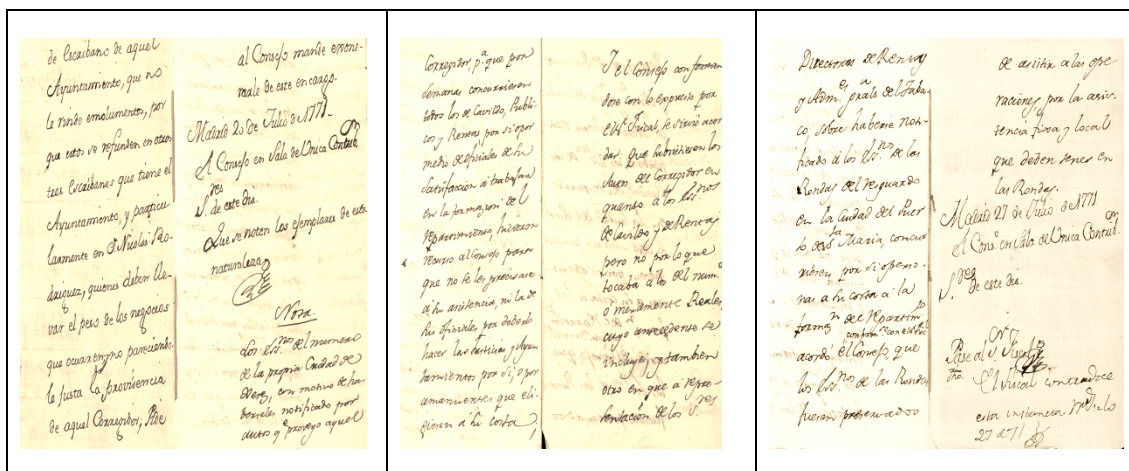 de Escribano de aquel
Ayuntamiento, que no
le rinde emolumento, por
que estos se refunden en otros
tres Escribanos que tiene el
Ayuntamiento, y particu
larmente en Dn Nicolás Ro-
driguez, quienes deben lle-
var el peso de los negocios
que ocurren, y no pareciendo-
le justa la providencia
de aquel Corregidor, Pide
al Consejo mande exone-
rarle de este encargo.
Madrid 25 de Julio de 1771.
El Consejo en Sala de Unica Contribn
Sres
de este dia.
Que se noten los exemplares de esta
naturaleza
Nota.
Los Essnos del numero
de la propia Ciudad de
Xerez, con motivo de ha-
berseles notificado por
autos qe proveyo aquel
Corregidor, pa que por
semanas concurriesen
todos los de Cavildo, Publi-
cos y Rentas por si o por
medio de oficiales de su
satisfaccion a trabajar
en la formazion del
repartimiento, hicieron
recurso al Consejo para
que no se les precisase
a su asistencia, ni la de
sus oficiales, por deberlo
hacer las Justicias y Ayun
tamientos por si, o por
amanuenses que eli-
giesen a su costa,
Y el Consejo conforman
dose con lo expuesto por
el Sr Fiscal, se sirvió acor
dar, que subsistiesen los
Autos del Corregidor en
quanto a los Essnos
de Cavildo y de Rentas
pero no por lo que
tocaba a los del numo
o meramente Reales,
cuyo antecedente se
incluye, y tambien
otro en que a repre-
sentacion de los Sres
Directores de Rentas
y Admres grales del Taba-
co, sobre haberse noti-
ficado á los Essnos de las
Rondas del resguardo
en la Ciudad del Puer
to de Sta Maria, concu
rriesen por si o perso-
nas a su costa a la
formn del repartimto
acordó el Consejo, que
los Essnos de las Rondas
fuesen preservados
de asistir a las ope
raciones por la asis-
tencia fixa y local
que deben tener en
las Rondas.
Madrid 27 de Julio de 1771
El Conso en Sala de Unica Contribn
Sres
de este dia.
Pase al Sr Fiscal
El Fiscal contradice
esta instancia Md Julio
27 de 71